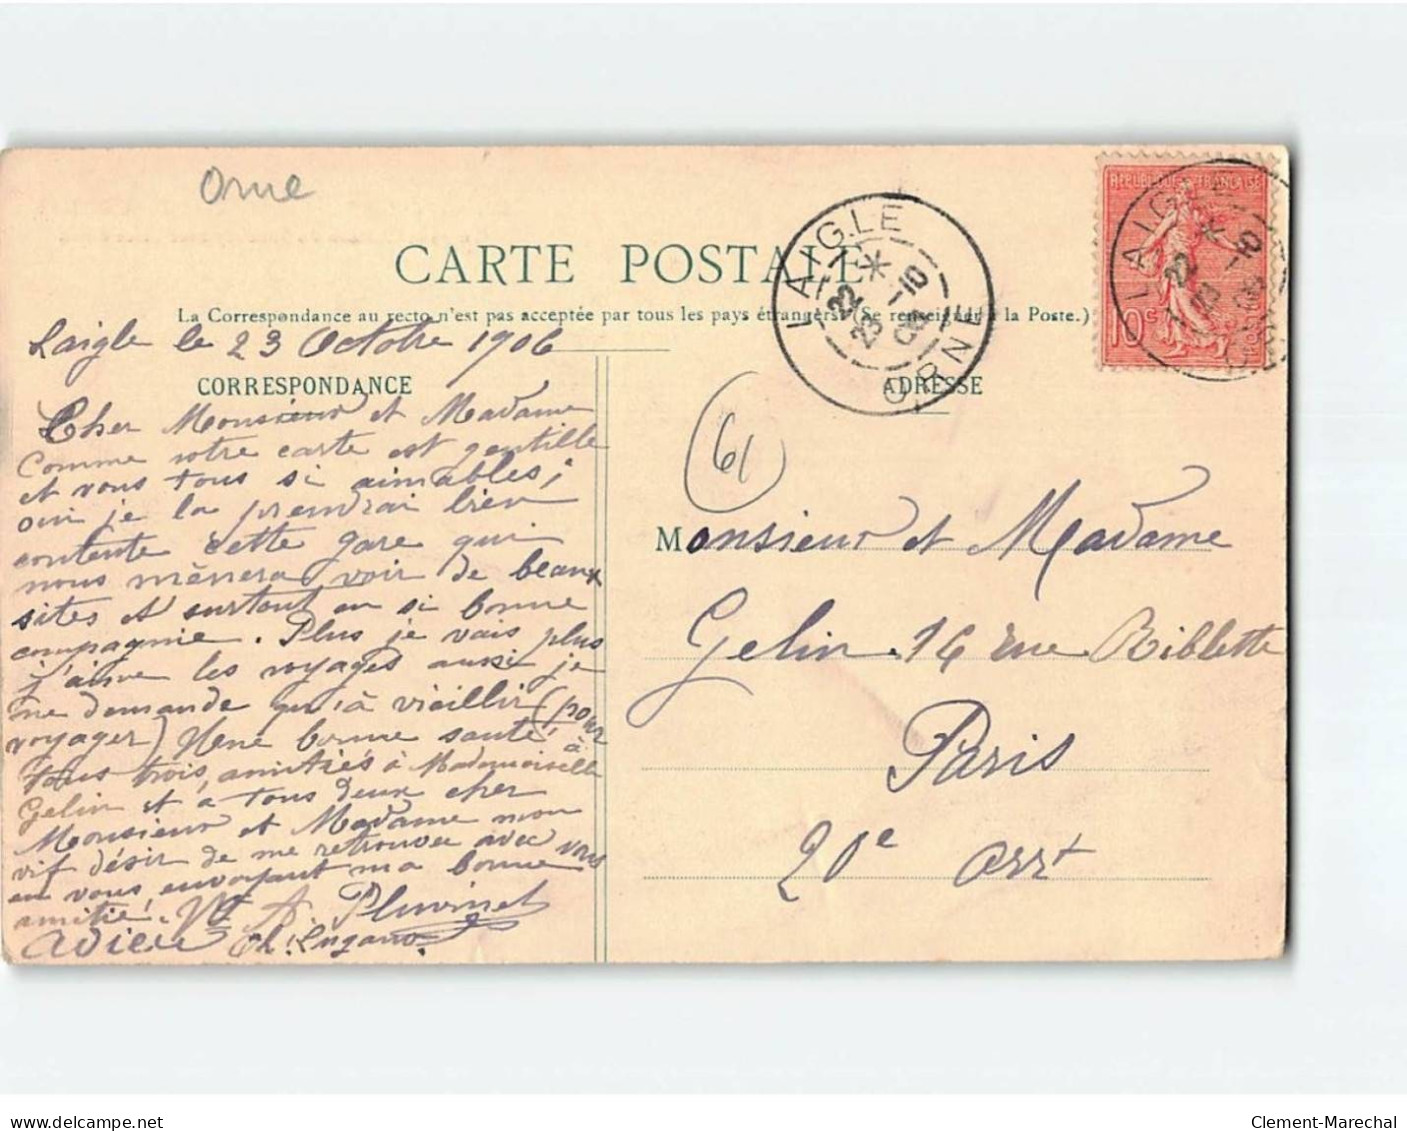 Orne
CARTE POSTALE
La Correspondance au recto n'est pas acceptée par tous les pays étrangers (Se renseigner à la Poste.)
LAIGLE
22
23 -10
06
ORNE
REPUBLIQUE FRANCAISE
10c
LAIGLE
22
23 -10
06
Laigle le 23 Octobre 1906
CORRESPONDANCE
Cher Monsieur et Madame
Comme votre carte est gentille
et vous tous si aimables;
oui je la prendrai bien
contente cette gare qui
nous mènera voir de beaux
sites et surtout en si bonne
compagnie. Plus je vais plus
j'aime les voyages aussi je
ne demande qu'à vieillir (pour
voyager) bonne santé à
tous trois, amitiés à Mademoiselle
Gelin et à tous deux cher
Monsieur et Madame mon
vif désir de me retrouver avec vous
en vous envoyant ma bonne
amitié. A. Pluvinet
ADRESSE
61
Monsieur et Madame
Gelin 16 rue Riblette
Paris
20e arrt
delcampe.net
Clement-Marechal